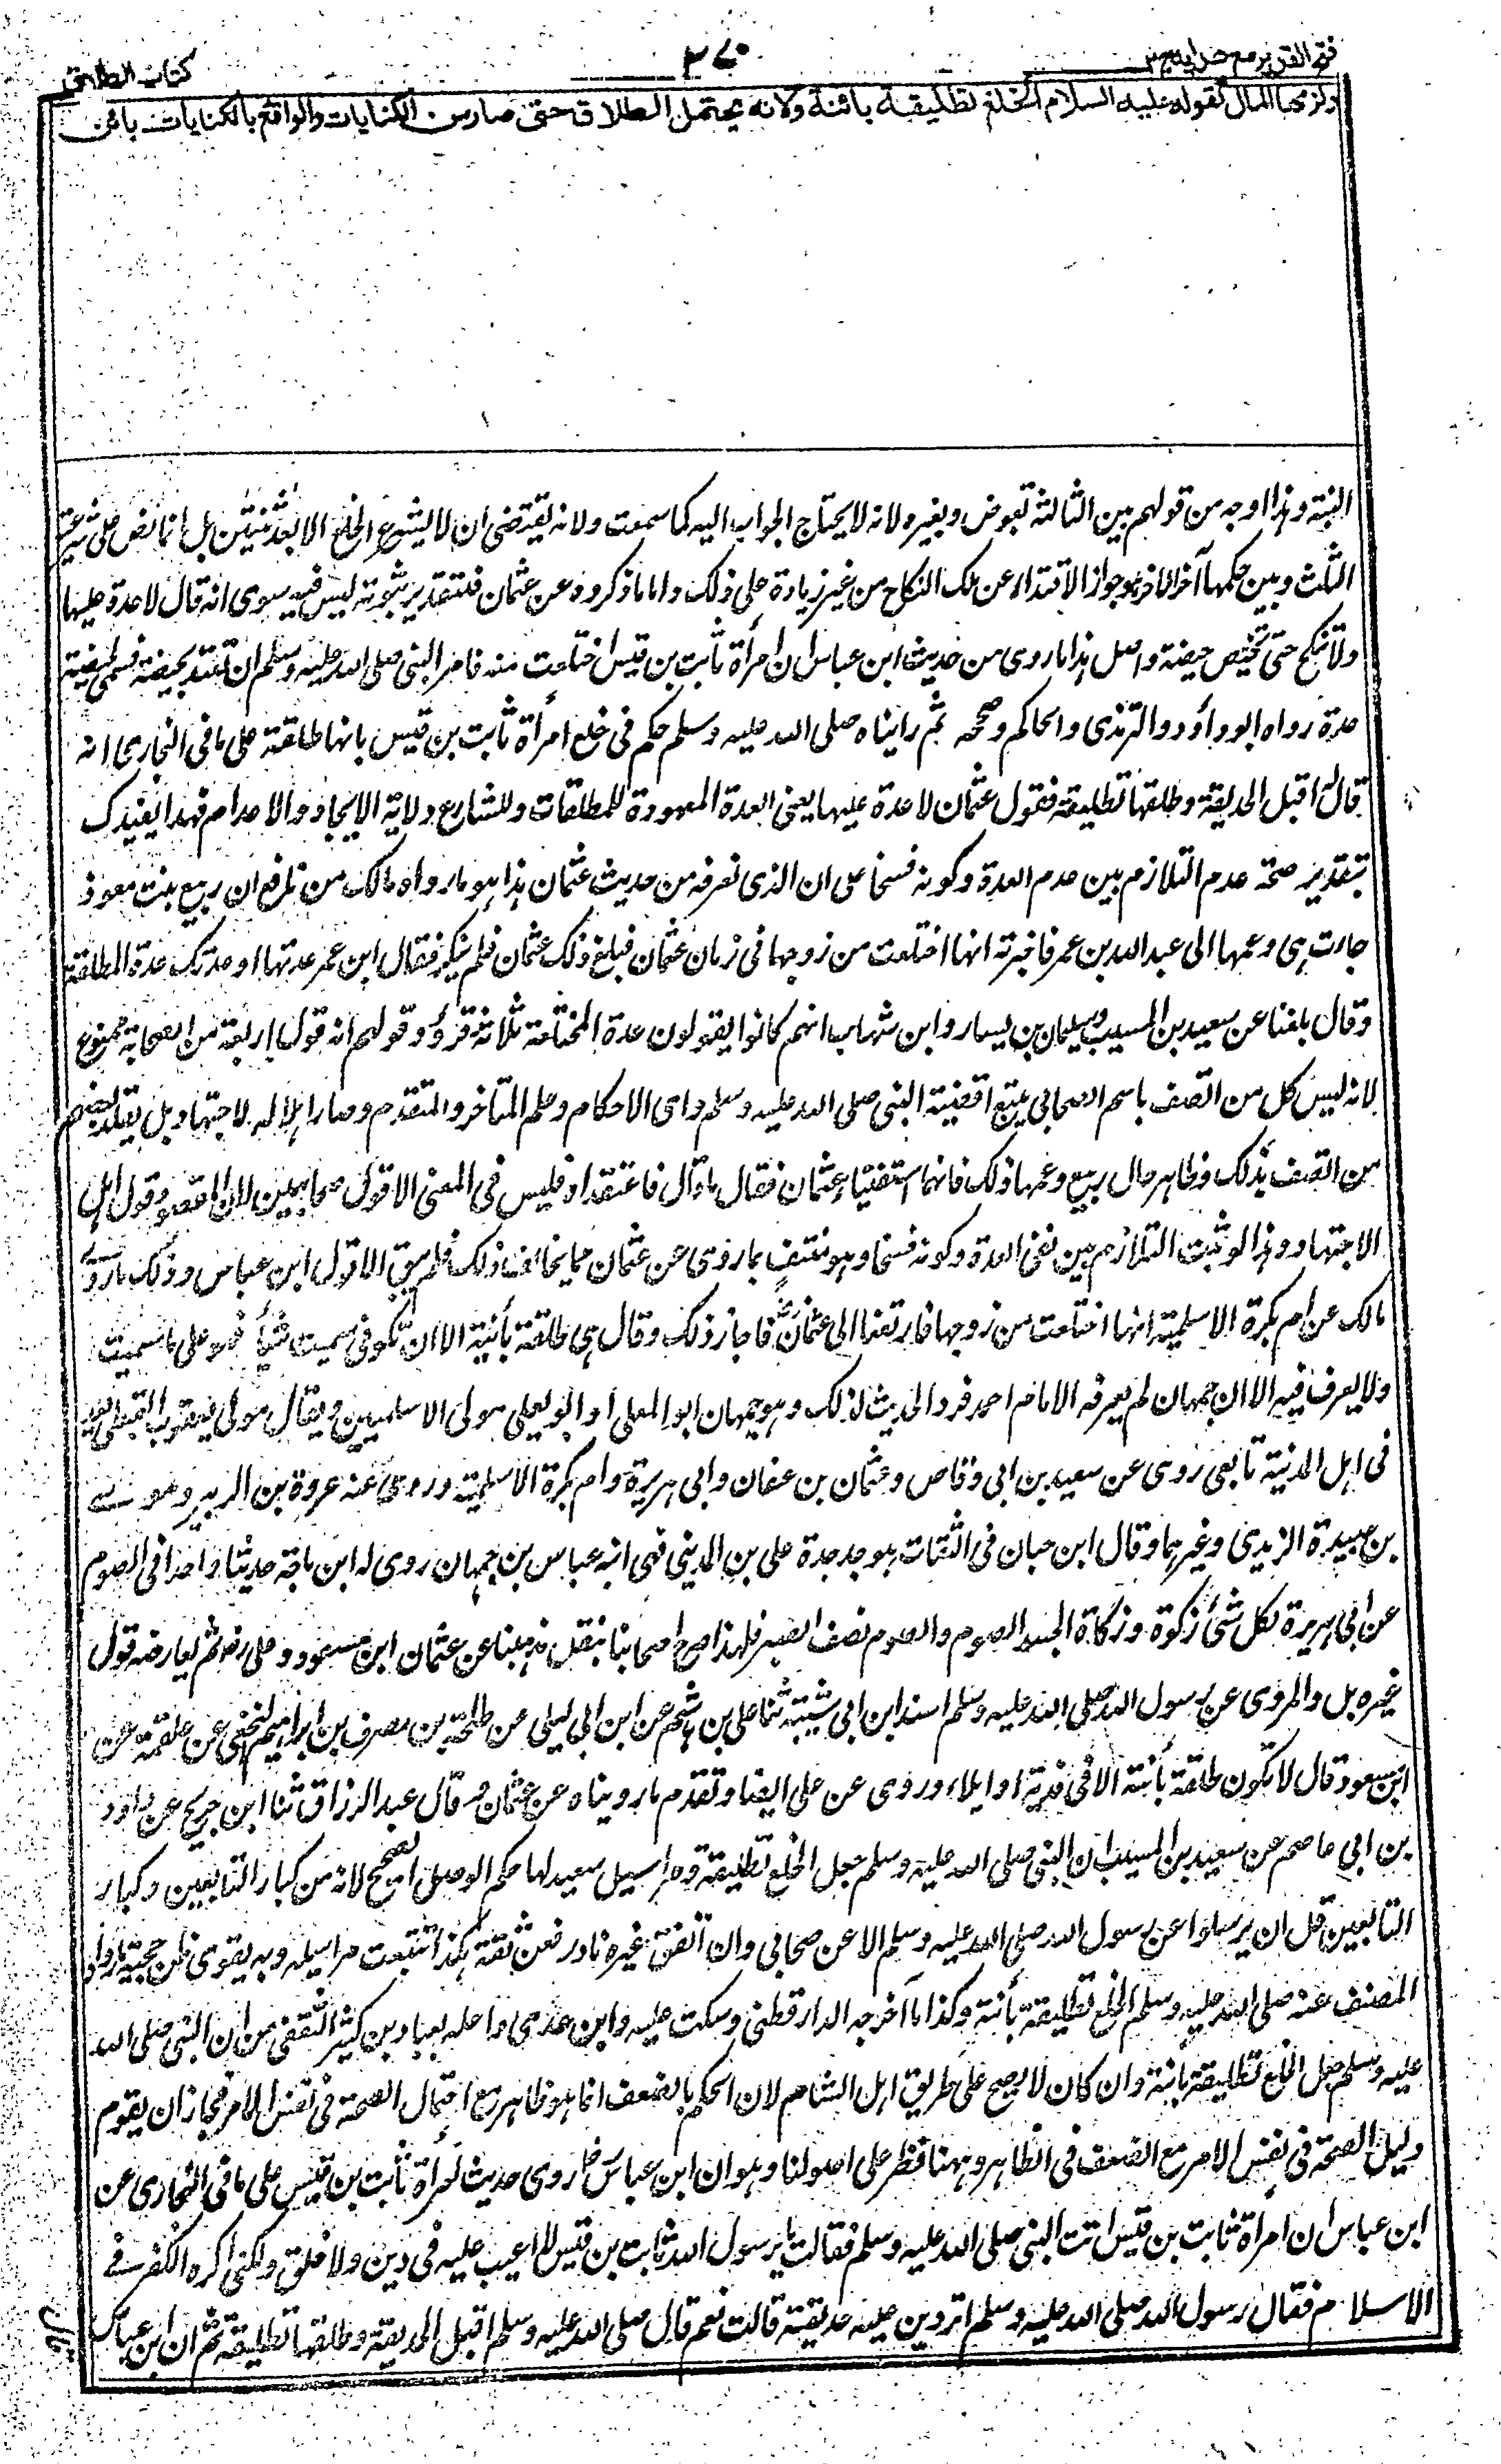 فتح القدير مع هدايه ج ٣
٣٤٠
كتاب الطلاق
ولزمها المال لقوله عليه السلام الخلع تطليقة بائنة ولانه يحتمل الطلاق حتى صار من الكنايات والواقع بالكنايات بائن
البتة وهذا اوجه من قولهم بين الثالثة بعوض وبغيره ولانه لا يحتاج الجواب اليه كما سمعت ولانه يقتضى ان لا يشرع الخلع الا بعد ثنتين بل انما نص على شرعية
الثلث وبين حكمها آخر الافر وهو جواز الافتداء عن ملك النكاح من غير زيادة على ذلك واما ما ذكروه عن عثمان فبتقدير ثبوته ليس فيه سوى انه قال لا عدة عليها
ولا تنكح حتى تحيض حيضة واصل هذا ما روى من حديث ابن عباس ان امرأة ثابت بن قيس اختلعت منه فامر النبى صلى الله عليه وسلم ان تعتد بحيضة فسمى الحيضة
عدة رواه ابو داود والترمذى والحاكم وصححه ثم رايناه صلى الله عليه وسلم حكم فى خلع امرأة ثابت بن قيس بانها طلقة على ما فى البخارى انه
قال له اقبل الحديقة وطلقها تطليقة فقول عثمان لا عدة عليها يعنى العدة المعهودة للمطلقات وللشارع ولاية الايجاد والاعدام فهذا يفيدك
بتقدير صحته عدم التلازم بين عدم العدة وكونه فسخا على ان الذى نعرفه من حديث عثمان هذا هو ما رواه مالك من نافع ان ربيع بنت معوذ
جاءت هى وعمها الى عبد الله بن عمر فاخبرته انها اختلعت من زوجها فى زمان عثمان فبلغ ذلك عثمان فلم ينكر فقال ابن عمر عدتها او عدتك عدة المطلقة
وقال بلغنا عن سعيد بن المسيب وسليمان بن يسار وابن شهاب انهم كانوا يقولون عدة المختلعة ثلاثة قروء وقولهم انه قول اربعة من الصحابة ممنوع
لانه ليس كل من اتصف باسم الصحابى يتبع اقضية النبى صلى الله عليه وسلم واى الاحكام وعلم المتاخر والمتقدم وصار اهلا للاجتهاد بل يقلد بعضهم
من اتصف بذلك وظاهر حال ربيع وعمها ذلك فانهما استفتيا عثمان فقال ما قال فاعتقداه فليس فى المعنى الا قول صحابيين لان المقصود قول اهل
الاجتهاد وهذا لو ثبت التلازم بين نفى العدة وكونه فسخا وهو منتف بما روى عن عثمان مما يخالف ذلك فلم يبق الا قول ابن عباس وذلك ما روى
مالك عن ام بكرة الاسلمية انها اختلعت من زوجها فارتفعا الى عثمان فاجاز ذلك وقال هى طلقة بائنة الا ان تكونى سميت شيئا فهو على ما سميت
ولا يعرف فيه الا ان جمهان لم يعرفه الامام احمد فرد الحديث لذلك وهو جمهان ابو المعلى او ابو يعلى مولى الاسلميين ويقال مولى يعقوب القبطى يعد
فى اهل المدينة تابعى روى عن سعيد بن ابى وقاص وعثمان بن عفان وابى هريرة وام بكرة الاسلمية وروى عنه عروة بن الزبير وموسى
بن عبيدة الزيدى وغيرهما وقال ابن حبان فى الثقات هو جد جدة على بن المدينى فهى ابنة عباس بن جمهان روى له ابن ماجة حديثا واحدا فى الصوم
عن ابى هريرة لكل شئ زكوة وزكاة الجسد الصوم والصوم نصف الصبر فلهذا صرح اصحابنا بنقل مذهبنا عن عثمان ابن مسعود وعلى رض ثم لم يعارضه قول
غيره بل والمروى عن رسول الله صلى الله عليه وسلم اسند ابن ابى شيبة ثنا على بن هاشم عن ابن ابى ليلى عن طلحة بن مصرف عن ابراهيم النخعى عن علقمة عن
ابن مسعود قال لا تكون طلقة بائنة الا فى فدية او ايلاء وروى عن على ايضا وتقدم ما رويناه عن عثمان و قال عبد الرزاق ثنا ابن جريج عن داود
بن ابى عاصم عن سعيد بن المسيب ان النبى صلى الله عليه وسلم جعل الخلع تطليقة ومراسيل سعيد لها حكم الوصل الصحيح لانه من كبار التابعين وكبار
التابعين قل ان يرسلوا عن رسول الله صلى الله عليه وسلم الا عن صحابى وان اتفق غيره نادر فعن ثقة هكذا تتبعت مراسيله وبه يقوى ظن حجية ما رواه
المصنف عنه صلى الله عليه وسلم الخلع تطليقة بائنة وكذا ما اخرجه الدارقطنى وسكت عليه وابن عدى واعله بعباد بن كثير الثقفى من ان النبى صلى الله
عليه وسلم جعل الخلع تطليقة بائنة وان كان لا يصح على طريق اهل الشام لان الحكم بالضعف انما هو ظاهر مع احتمال الصحة فى نفس الامر فجاز ان يقوم
دليل الصحة فى نفس الامر مع الضعف فى الظاهر وههنا نظر على اصولنا وهو ان ابن عباس رض روى حديث امرأة ثابت بن قيس على ما فى البخارى عن
ابن عباس ان امرأة ثابت بن قيس اتت النبى صلى الله عليه وسلم فقالت يا رسول الله ثابت بن قيس لا اعيب عليه فى دين ولا خلق ولكنى اكره الكفر فى
الاسلام فقال رسول الله صلى الله عليه وسلم اتردين عليه حديقته قالت نعم قال صلى الله عليه وسلم اقبل الحديقة وطلقها تطليقة ثم ان ابن عباس
قال